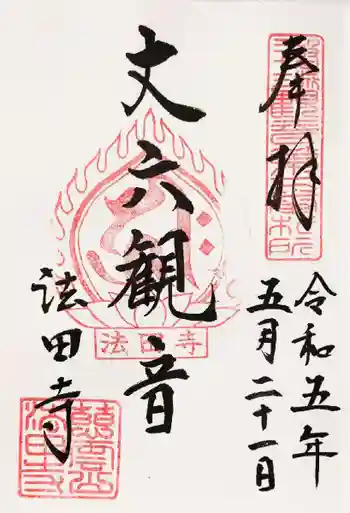 奉拝
令和五年
五月二十一日
丈六観音
法田寺
法田寺